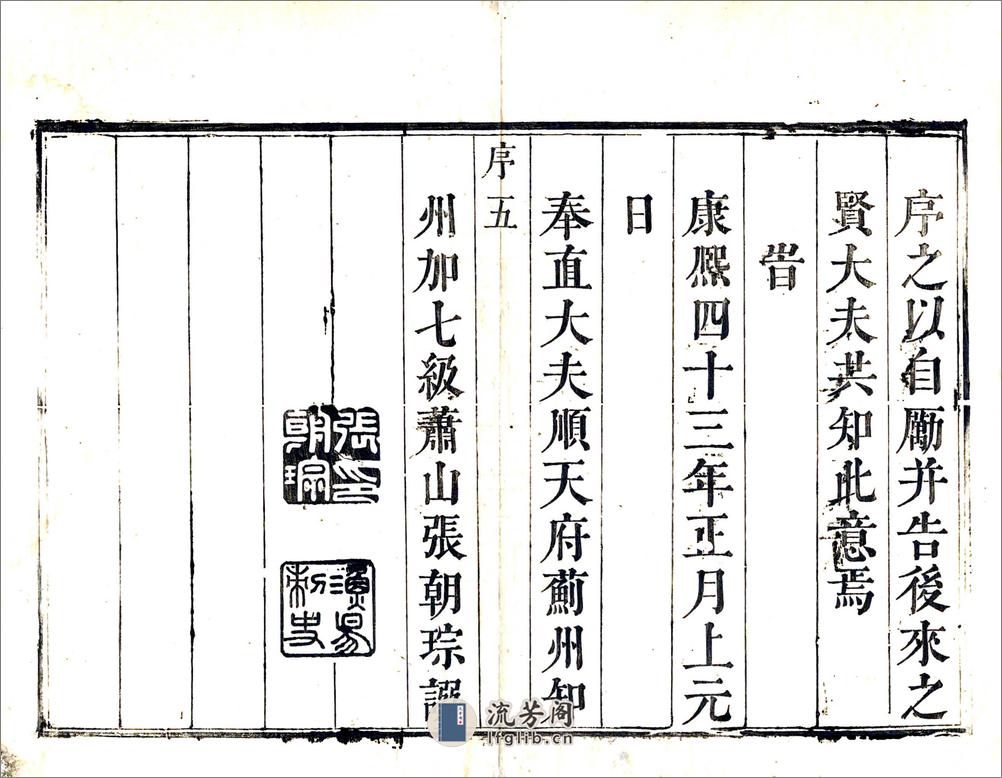 序之以自勵并告後來之
賢大夫共知此意焉
旹
康熙四十三年正月上元
日
奉直大夫順天府薊州知
序五
州加七級蕭山張朝琮譔
張印
朝琮
漁昜
刺史
流芳阁
lfglib.cn